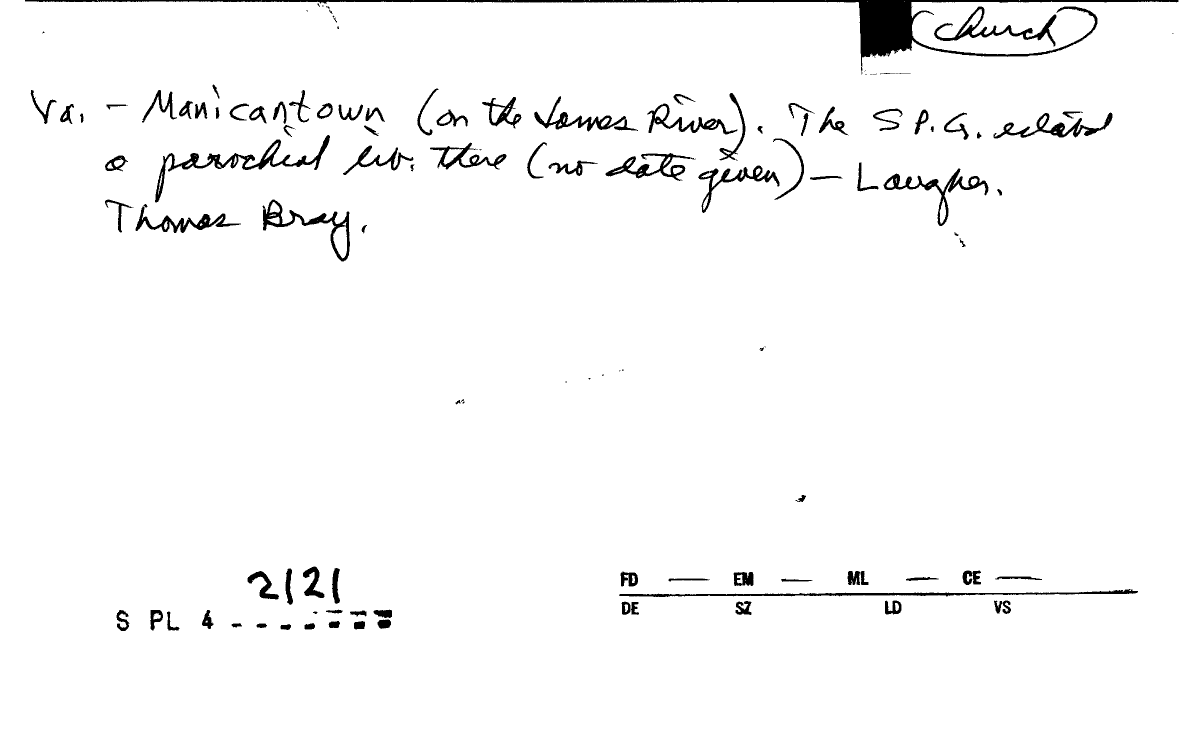 church
Va. - Manicantown (on the James River). The S P.G. estabd
a parochial lib. there (no date given) - Laugher.
Thomas Bray.
2121
S PL 4
FD — EM — ML — CE —
DE SZ LD VS